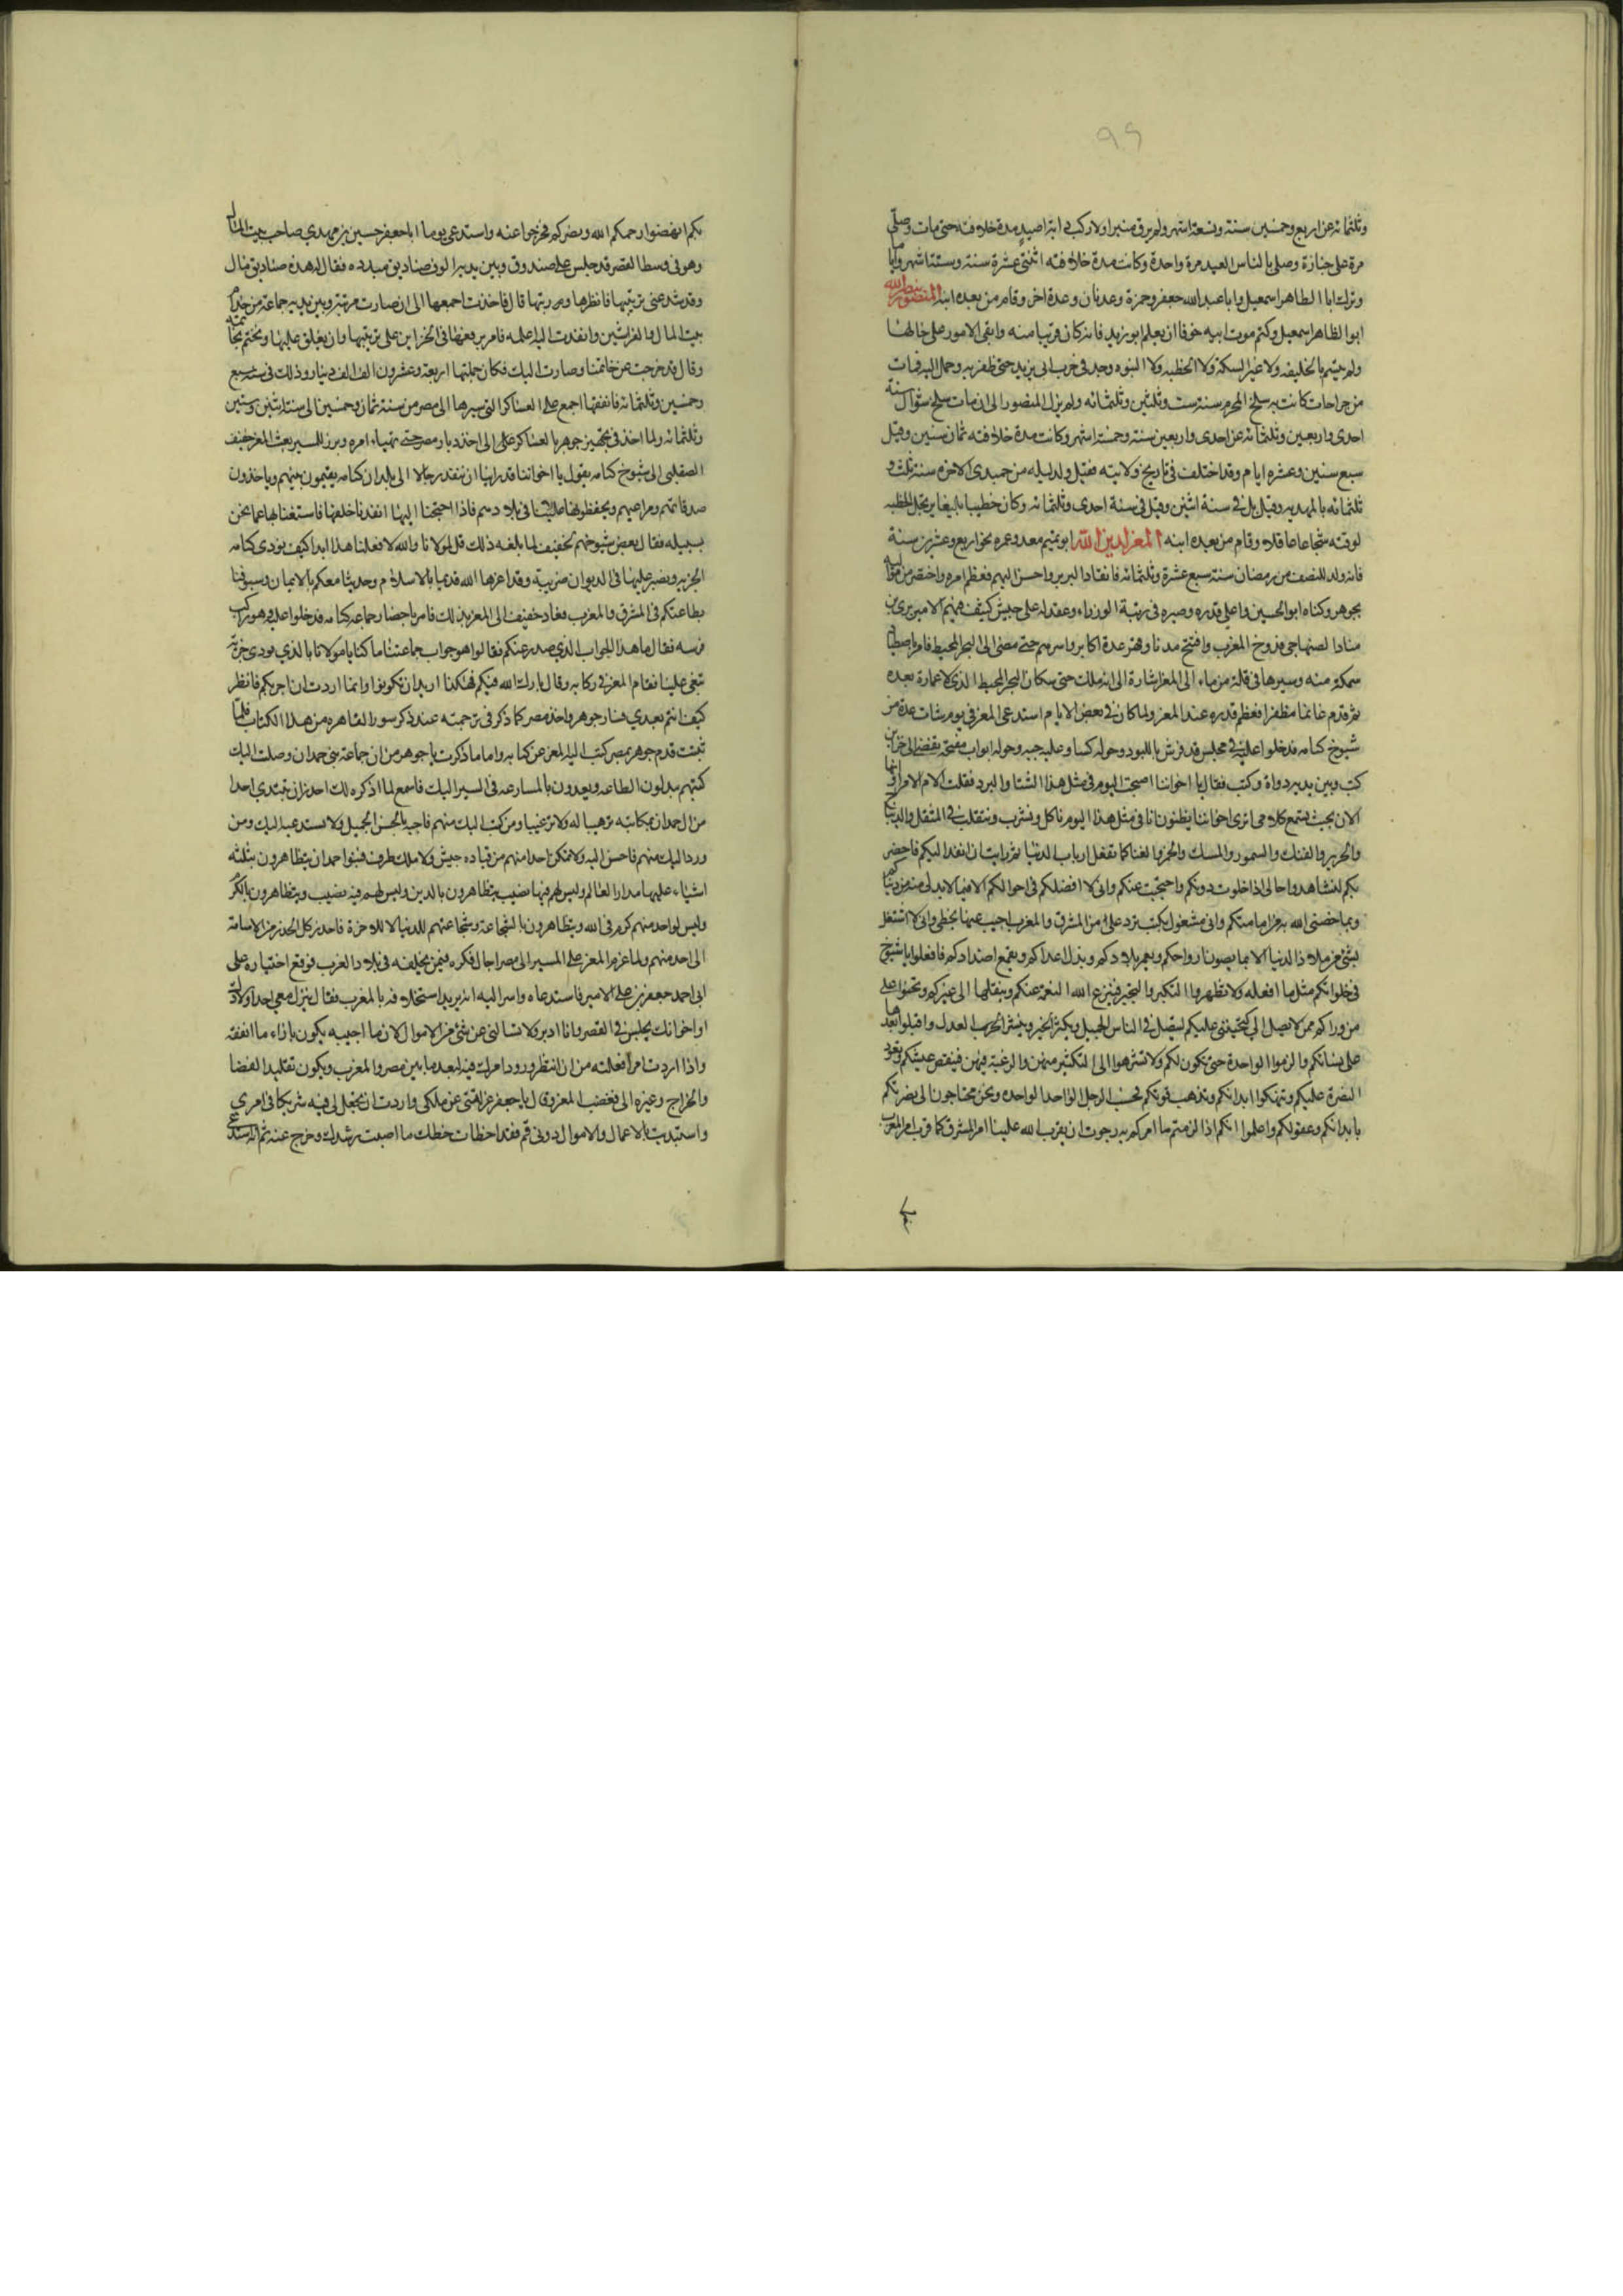 ٩٩
وثلثمائه عن اربع وخمسين سنة وتسعة اشهر ولم يرق منبرا ولا ركب دابة لصيد مدة خلافته حتى مات وصلى
مرة على جنازة وصلى بالناس العيد مرة واحدة وكانت مدة خلافته اثنتى عشرة سنة وستة اشهر واياما
وترك ابا الطاهر اسمعيل وابا عبد الله جعفر وحمزة وعدنان وعدة اخر وقام من بعده ابنه المنصور بنصر الله
ابو الظاهر اسمعيل وكتم موت ابيه خوفا ان يعلم ابو يزيد فانه كان قريبا منه وابقى الامور على حالها
ولم يتسم بالخليفه ولا غير السكة ولا الخطبه ولا البنود وجد فى حرب ابى يزيد حتى ظفر به وحمل اليه فمات
من جراحات كانت به سلخ المحرم سنة ست وثلثين وثلثمائه ولم يزل المنصور الى ان مات سلخ شوال سنة
احدى واربعين وثلثمائه عن احدى واربعين سنة وخمسة اشهر وكانت مدة خلافته ثمان سنين وقيل
سبع سنين وعشره ايام وقد اختلف فى تاريخ ولادته فقيل ولد ليله من جمدى الاخره سنة ثلث و
ثلثمائه بالمهديه وقيل بل فى سنة اثنين وقيل فى سنة احدى وثلثمائه وكان خطيبا بليغا يرتجل الخطبه
لوقته شجاعا عاقلا وقام من بعده ابنه المعز لدين الله ابو تميم معد وعمره نحو اربع وعشرين سنة
فانه ولد للنصف من رمضان سنة سبع عشرة وثلثمائه فانقاد اليه البربر واحسن اليهم فعظم امره واختص من مواليه
بجوهر وكناه ابو الحسين واعلى قدره وصيره فى رتبة الوزراء وعقد له على جيش كثيف فيهم الامير زيرى بن
مناد الصنهاجى فدوخ المغرب وافتتح مدنا وقهر عدة اكابر واسرهم حتى مضى الى البحر المحيط فامر باصطياد
سمكة منه وسيرها فى قلة من ماء الى المعز اشارة الى انه ملك حتى سكان البحر المحيط الذى لا عمارة بعده
ثم قدم غانما مظفرا فعظم قدره عند المعز ولما كان فى بعض الايام استدعى المعز فى يوم شات عدة من
شيوخ كتامه فدخلوا عليه فى مجلس قد فرش باللبود وحوله كسا وعليه جبه وحوله ابواب مفتحة تفضى الى خزاين
كتب وبين يديه دواة وكتب فقال يا اخواننا اصبحت اليوم فى مثل هذا الشتا والبرد فقلت لام الامرا وانها
الان بحيث تسمع كلامى اترى اخواننا يظنون انا فى مثل هذا اليوم ناكل ونشرب ونتقلب فى المثقل والديباج
والحرير والفنك والسمور والمسك والخمر والغنا كما تفعل ارباب الدنيا ثم رايت ان انفذ اليكم فاحضر
بكم لتشاهدوا حالى اذا خلوت دونكم واحتجبت عنكم وانى لا افضلكم فى احوالكم الا فيما لا بد لى منه من دنياكم
وبما خصنى الله به من امامتكم وانى مشغول بكتب ترد على من المشرق والمغرب اجيب عنها بخطى وانى لا اشتغل
بشئ من ملاذ الدنيا الا بما يصون ارواحكم ويعمر بلادكم ويذل اعداكم ويقمع اضدادكم فافعلوا يا شيوخ
فى خلواتكم مثل ما افعله ولا تظهروا التكبر والتجبر فينزع الله النعمة عنكم وينقلها الى غيركم وتحننوا على
من وراكم ممن لا يصل الى كتحننى عليكم ليتصل فى الناس الجميل ويكثر الخير وينتشر العدل واقبلوا بعدها
على نسائكم والزموا الواحدة حتى تكون لكم ولا تشرهوا الى التكثير منهن والرغبة فيهن فينقص عيشكم وتعود
المضرة عليكم وتنهكوا ابدانكم وتذهب قوتكم فحسب الرجل الواحد الواحده ونحن محتاجون الى نصرتكم
بابدانكم وعقولكم واعلموا انكم اذا لزمتم ما امركم به رجوت ان يقرب الله علينا امر المشرق كما قرب امر المغرب
بكم انهضوا رحمكم الله ونصركم فخرجوا عنه واستدعى يوما ابا جعفر حسين بن مهدى صاحب بيت المال
وهو فى وسط القصر قد جلس على صندوق وبين يديه الوف صناديق مبدده فقال له هذه صناديق مال
وقد شذ عنى ترتيبها فانظرها ورتبها قال فاخذت اجمعها الى ان صارت مرتبة وبين يديه جماعة من خدام
بيت المال والفراشين وانفذت اليه اعلمه فامر برفعها فى الخزاين على ترتيبها وان يغلق عليها ويختم بخاتمه
وقال قد خرجت عن خاتمنا وصارت اليك فكان جملتها اربعة وعشرون الف الف دينار وذلك فى سنة سبع
وخمسين وثلثمائه فانفقها اجمع على العساكر التى سيرها الى مصر من سنة ثمان وخمسين الى سنة اثنين وستين
وثلثمائه ولما اخذ فى تجهيز جوهر بالعساكر على الى اخذ ديار مصر حتى تهياء امره وبرز للمسير بعث المعز خفيف
الصقلبى الى شيوخ كتامه يقول يا اخواننا قد راينا ان ننفذ رجالا الى بلدان كتامه يقيمون بينهم وياخذون
صدقاتهم ومراعيهم ويحفظونها علينا فى بلادهم فاذا احتجنا اليها انفذنا خلفها فاستعنا بها على ما نحن
بسبيله فقال بعض شيوخهم لخفيف لما بلغه ذلك قل لمولانا والله لا فعلنا هذا ابدا كيف تؤدى كتامه
الجزيه ويصير عليها فى الديوان ضريبة وقد اعزها الله قديما بالاسلام وحديثا معكم بالايمان وسيوفنا
بطاعتكم فى المشرق والمغرب فعاد خفيف الى المعز بذلك فامر باحضار جماعة كتامه فدخلوا عليه وهو راكب
فرسه فقال ما هذا الجواب الذى صدر عنكم فقالوا هو جواب جماعتنا ما كنا يا مولانا بالذى نودى جزية
تبقى علينا فقام المعز فى ركابه وقال بارك الله فيكم فهكذا اريد ان تكونوا وانما اردت ان اجربكم فانظر
كيف انتم بعدى فسار جوهر واخذ مصر كما ذكر فى ترجمته عند ذكر سور القاهره من هذا الكتاب فلما
ثبتت قدم جوهر بمصر كتب اليه المعز عن كتابه واما ما ذكرت يا جوهر من ان جماعة بنى حمدان وصلت اليك
كتبهم يبذلون الطاعه ويعدون بالمسارعه فى السير اليك فاسمع لما اذكره لك احذر ان تبتدى احدا
من ال حمدان بمكاتبه ترهيبا له ولا ترغيبا ومن كتب اليك منهم فاجبه بالحسن الجميل ولا تستدعيه اليك ومن
ورد اليك منهم فاحسن اليه ولا تمكن احدا منهم من قياده جيش ولا ملك طرف فبنوا حمدان يتظاهرون بثلثه
اشياء عليها مدار العالم وليس لهم فيها نصيب يتظاهرون بالدين وليس لهم فيه نصيب ويتظاهرون بالكرم
وليس لواحد منهم كرم فى الله ويتظاهرون بالشجاعة وشجاعتهم للدنيا لا للاخرة فاحذر كل الحذر من الاستنامة
الى احد منهم ولما عزم المعز على المسير الى مصر اجال فكره فيمن يخلفه فى بلاد الغرب فوقع اختياره على
ابى احمد جعفر بن على الامير فاستدعاه واسر اليه انه يريد استخلافه بالمغرب فقال تنزل معى احد اولادك
او اخوانك يجلس فى القصر وانا ادبر ولا تسالنى عن شئ من الاموال لان ما اجبيه يكون بازاء ما انفقه
واذا اردت امرا فعلته من ان انتظر ورود امرك فيه لبعد ما بين مصر والمغرب ويكون تقليد القضا
والخراج وغيره الى فغضب المعز وقال يا جعفر عزلتنى عن ملكى واردت ان تجعل لى فيه شريكا فى امرى
واستبديت بالاعمال والاموال دونى قم فقد اخطات حظك ما اصبت رشدك وخرج عنه ثم انه استدعى